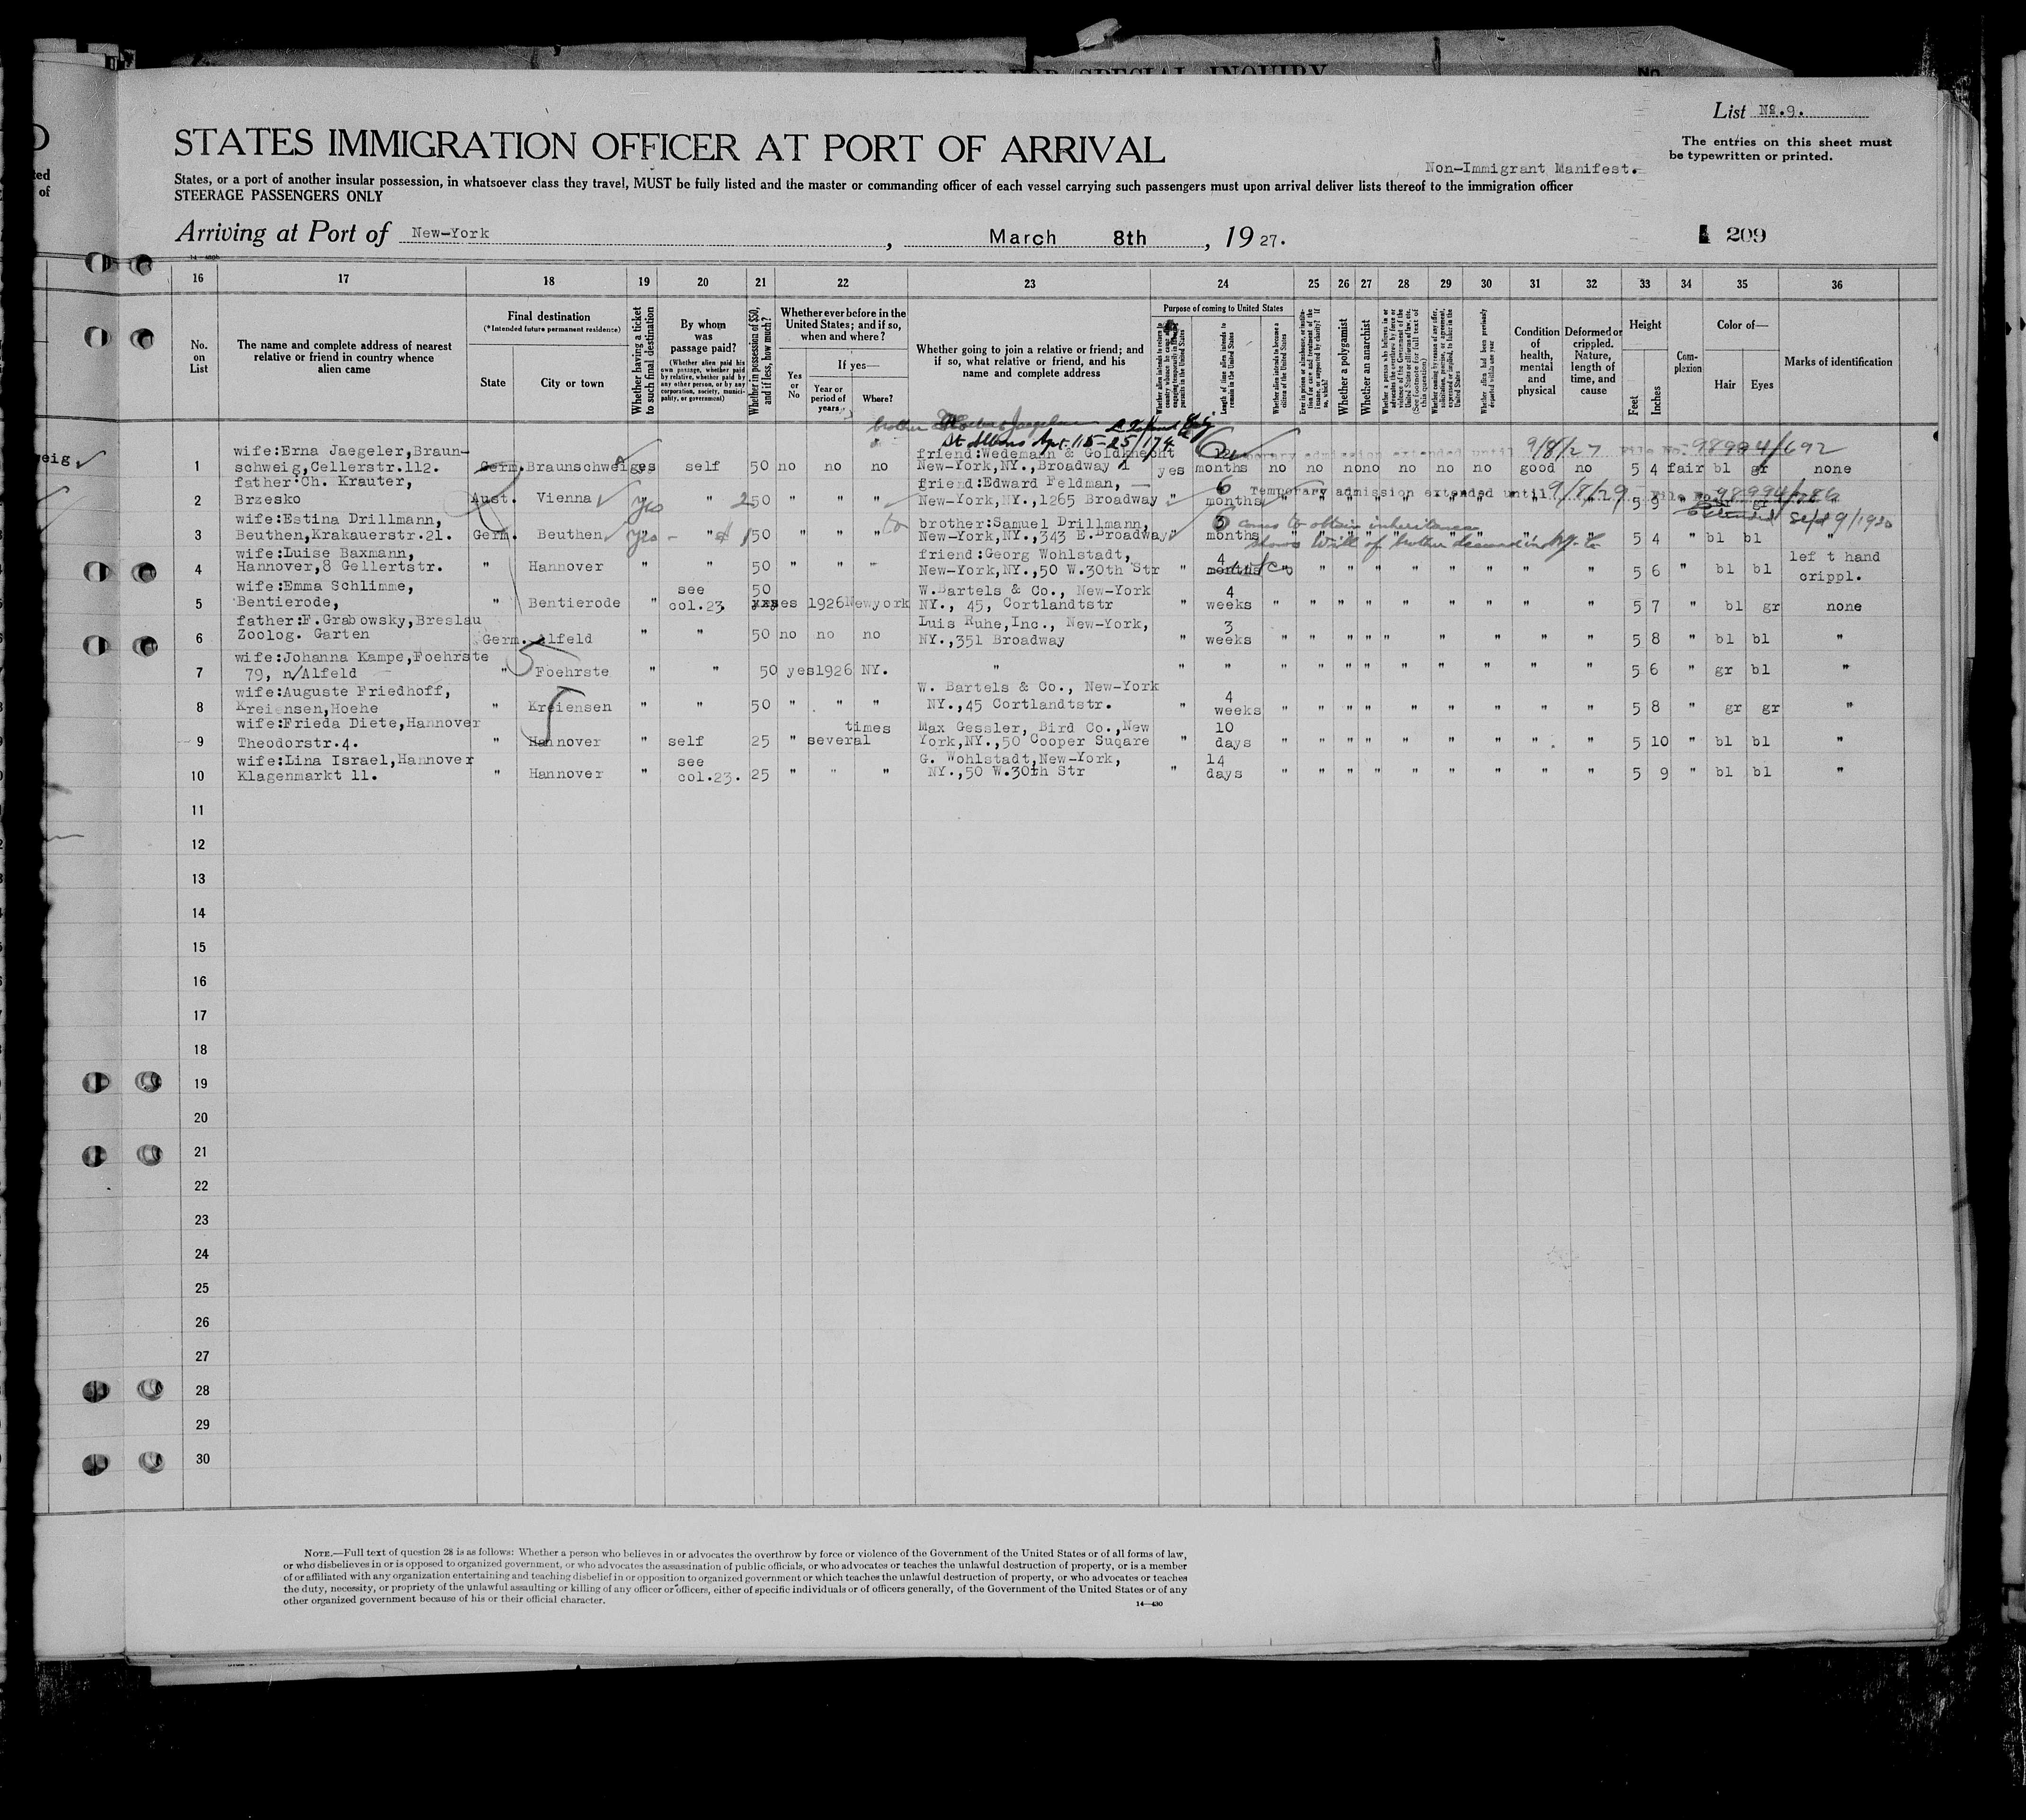 HELD FOR SPECIAL INQUIRY
No.
List No.9.
STATES IMMIGRATION OFFICER AT PORT OF ARRIVAL
The entries on this sheet must
be typewritten or printed.
Non-Immigrant Manifest.
States, or a port of another insular possession, in whatsoever class they travel, MUST be fully listed and the master or commanding officer of each vessel carrying such passengers must upon arrival deliver lists thereof to the immigration officer
STEERAGE PASSENGERS ONLY
Arriving at Port of New-York, March 8th, 1927.
209
16 17 18 19 20 21 22 23 24 25 26 27 28 29 30 31 32 33 34 35 36
No. on List
The name and complete address of nearest relative or friend in country whence alien came
Final destination
(*Intended future permanent residence)
State
City or town
Whether having a ticket to such final destination
By whom was passage paid?
(Whether alien paid his own passage, whether paid by relative, whether paid by any other person, or by any corporation, society, municipality, or government)
Whether in possession of $50, and if less, how much?
Whether ever before in the United States; and if so, when and where?
Yes or No
If yes—
Year or period of years
Where?
Whether going to join a relative or friend; and if so, what relative or friend, and his name and complete address
Purpose of coming to United States
Length of time alien intends to remain in the United States
Whether alien intends to become a citizen of the United States
Whether a polygamist
Whether an anarchist
Whether alien had been previously deported within one year
Condition of health, mental and physical
Deformed or crippled. Nature, length of time, and cause
Height
Feet
Inches
Complexion
Color of—
Hair
Eyes
Marks of identification
brother
St Albans
1 wife:Erna Jaegeler,Braun-
schweig,Cellerstr.112. Germ. Braunschweig yes self 50 no no no friend:Wedemann & Goldknecht
New-York,NY.,Broadway 1 yes months no no no no no no no good no 5 4 fair bl gr none
Temporary admission extended until 9/8/27 File No. 98994/692
2 father:Ch. Krauter,
Brzesko Aust. Vienna yes " 250 " " " friend:Edward Feldman,
New-York,NY.,1265 Broadway " 6 months " 5 9 gr "
Temporary admission extended until 9/8/29 File No. 98994
Sept 9/1930
3 wife:Estina Drillmann,
Beuthen,Krakauerstr.21. Germ. Beuthen yes " 150 " " " brother:Samuel Drillmann,
New-York,NY.,343 E.Broadway " months " 5 4 " bl bl "
comes to obtain inheritance
shows Will of brother deceased in NY.
4 wife:Luise Baxmann,
Hannover,8 Gellertstr. " Hannover " " 50 " " " friend:Georg Wohlstadt,
New-York,NY.,50 W.30th Str " 4 months " 5 6 " bl bl lef t hand
crippl.
5 wife:Emma Schlimme,
Bentierode, " Bentierode " see
col.23 50 yes 1926 Newyork W.Bartels & Co., New-York
NY., 45, Cortlandtstr " 4 weeks " 5 7 " bl gr none
6 father:F.Grabowsky,Breslau
Zoolog. Garten Germ. Alfeld " " 50 no no no Luis Ruhe,Inc., New-York,
NY.,351 Broadway " 3 weeks " 5 8 " bl bl "
7 wife:Johanna Kampe,Foehrste
79, n/Alfeld " Foehrste " " 50 yes 1926 NY. " " " " 5 6 " gr bl "
8 wife:Auguste Friedhoff,
Kreiensen,Hoehe " Kreiensen " " 50 " " " W. Bartels & Co., New-York
NY.,45 Cortlandtstr. " 4 weeks " 5 8 " gr gr "
9 wife:Frieda Diete,Hannover
Theodorstr.4. " Hannover " self 25 " several times Max Gessler, Bird Co.,New
York,NY.,50 Cooper Suqare " 10 days " 5 10 " bl bl "
10 wife:Lina Israel,Hannover
Klagenmarkt 11. " Hannover " see
col.23. 25 " " " G. Wohlstadt,New-York,
NY.,50 W.30th Str " 14 days " 5 9 " bl bl "
11
12
13
14
15
16
17
18
19
20
21
22
23
24
25
26
27
28
29
30
NOTE.—Full text of question 28 is as follows: Whether a person who believes in or advocates the overthrow by force or violence of the Government of the United States or of all forms of law,
or who disbelieves in or is opposed to organized government, or who advocates the assassination of public officials, or who advocates or teaches the unlawful destruction of property, or is a member
of or affiliated with any organization entertaining and teaching disbelief in or opposition to organized government or which teaches the unlawful destruction of property, or who advocates or teaches
the duty, necessity, or propriety of the unlawful assaulting or killing of any officer or officers, either of specific individuals or of officers generally, of the Government of the United States or of any
other organized government because of his or their official character.
14—430